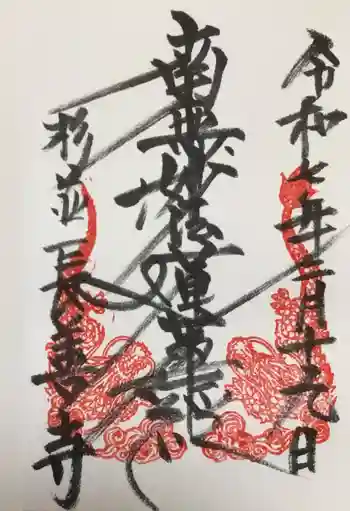 令和七年三月十六日
南無妙法蓮華経
杉並長善寺